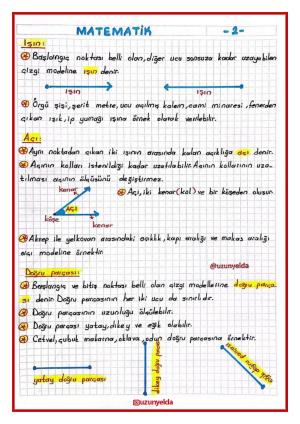 MATEMATİK -2-
Işın:
Başlangıç noktası belli olan, diğer ucu sonsuza kadar uzayabilen
çizgi modeline ışın denir.
Örgü şişi, şerit metre, ucu açılmış kalem, cami minaresi, fenerden
çıkan ışık, ip yumağı ışına örnek olarak verilebilir.
Açı:
Aynı noktadan çıkan iki ışının arasında kalan açıklığa açı denir.
Açının kolları istenildiği kadar uzatılabilir. Açının kollarının uza-
tılması açının ölçüsünü değiştirmez.
kenar
Açı, iki kenar (kol) ve bir köşeden oluşur.
AÇI
köşe
kenar
Akrep ile yelkovan arasındaki açıklık, kapı aralığı ve makas aralığı
açı modeline örnektir.
@uzunyelda
Doğru parçası:
Başlangıç ve bitiş noktası belli olan çizgi modellerine doğru parça-
sı denir. Doğru parçasının her iki ucu da sınırlıdır.
Doğru parçasının uzunluğu ölçülebilir.
Doğru parçası yatay, dikey ve eğik olabilir.
Cetvel, çubuk makarna, oklava, odun doğru parçasına örnektir.
yatay doğru parçası
dikey doğru parçası
@uzunyelda